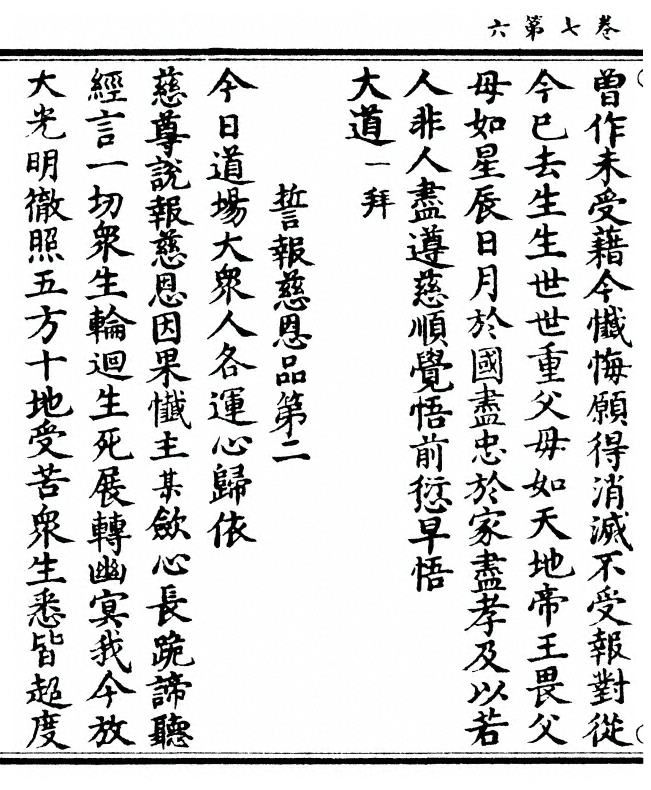 卷七第六
曽作未受藉今懴悔願得消滅不受報對從
今已去生生世世重父母如天地帝王畏父
母如星辰日月於國盡忠於家盡孝及以若
人非人盡遵慈順覺悟前愆早悟
大道一拜
誓報慈恩品第二
今日道場大衆人各運心歸依
慈尊說報慈恩因果懴主某歛心長跪諦聽
經言一切衆生輪迴生死展轉幽冥我今放
大光明徹照五方十地受苦衆生悉皆超度